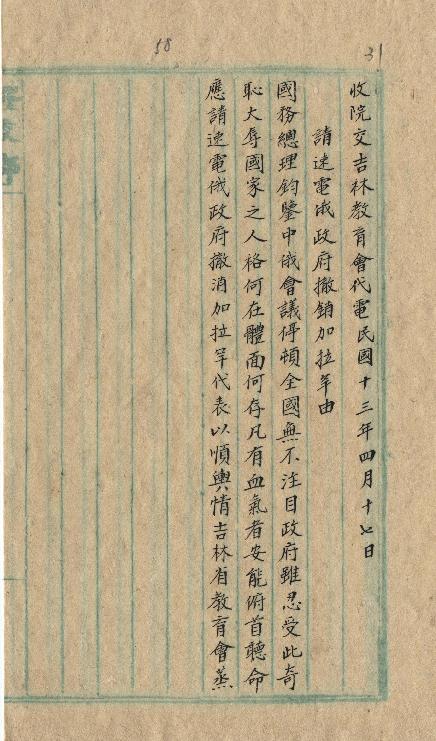 58
31
收院交吉林教育會代電民國十三年四月十七日
請速電俄政府撤銷加拉罕由
國務總理鈞鑒中俄會議停頓全國無不注目政府雖忍受此奇
恥大辱國家之人格何在體面何存凡有血氣者安能俯首聽命
應請速電俄政府撤消加拉罕代表以順輿情吉林省教育會蒸